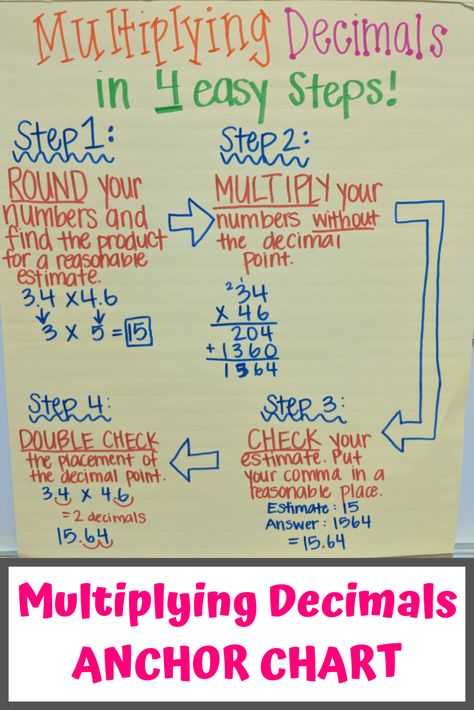 Multiplying Decimals
in 4 easy Steps!
Step 1:
ROUND your
numbers and
find the product
for a reasonable
estimate.
3.4 x 4.6
3 x 5 = 15
Step 2:
MULTIPLY your
numbers without
the decimal
point.
2 1
34
x 46
204
+ 1360
1564
Step 3:
CHECK your
estimate. Put
your comma in a
reasonable place.
Estimate: 15
Answer: 1564
= 15.64
Step 4:
DOUBLE CHECK
the placement of
the decimal point.
3.4 x 4.6
= 2 decimals
15.64
Multiplying Decimals
ANCHOR CHART